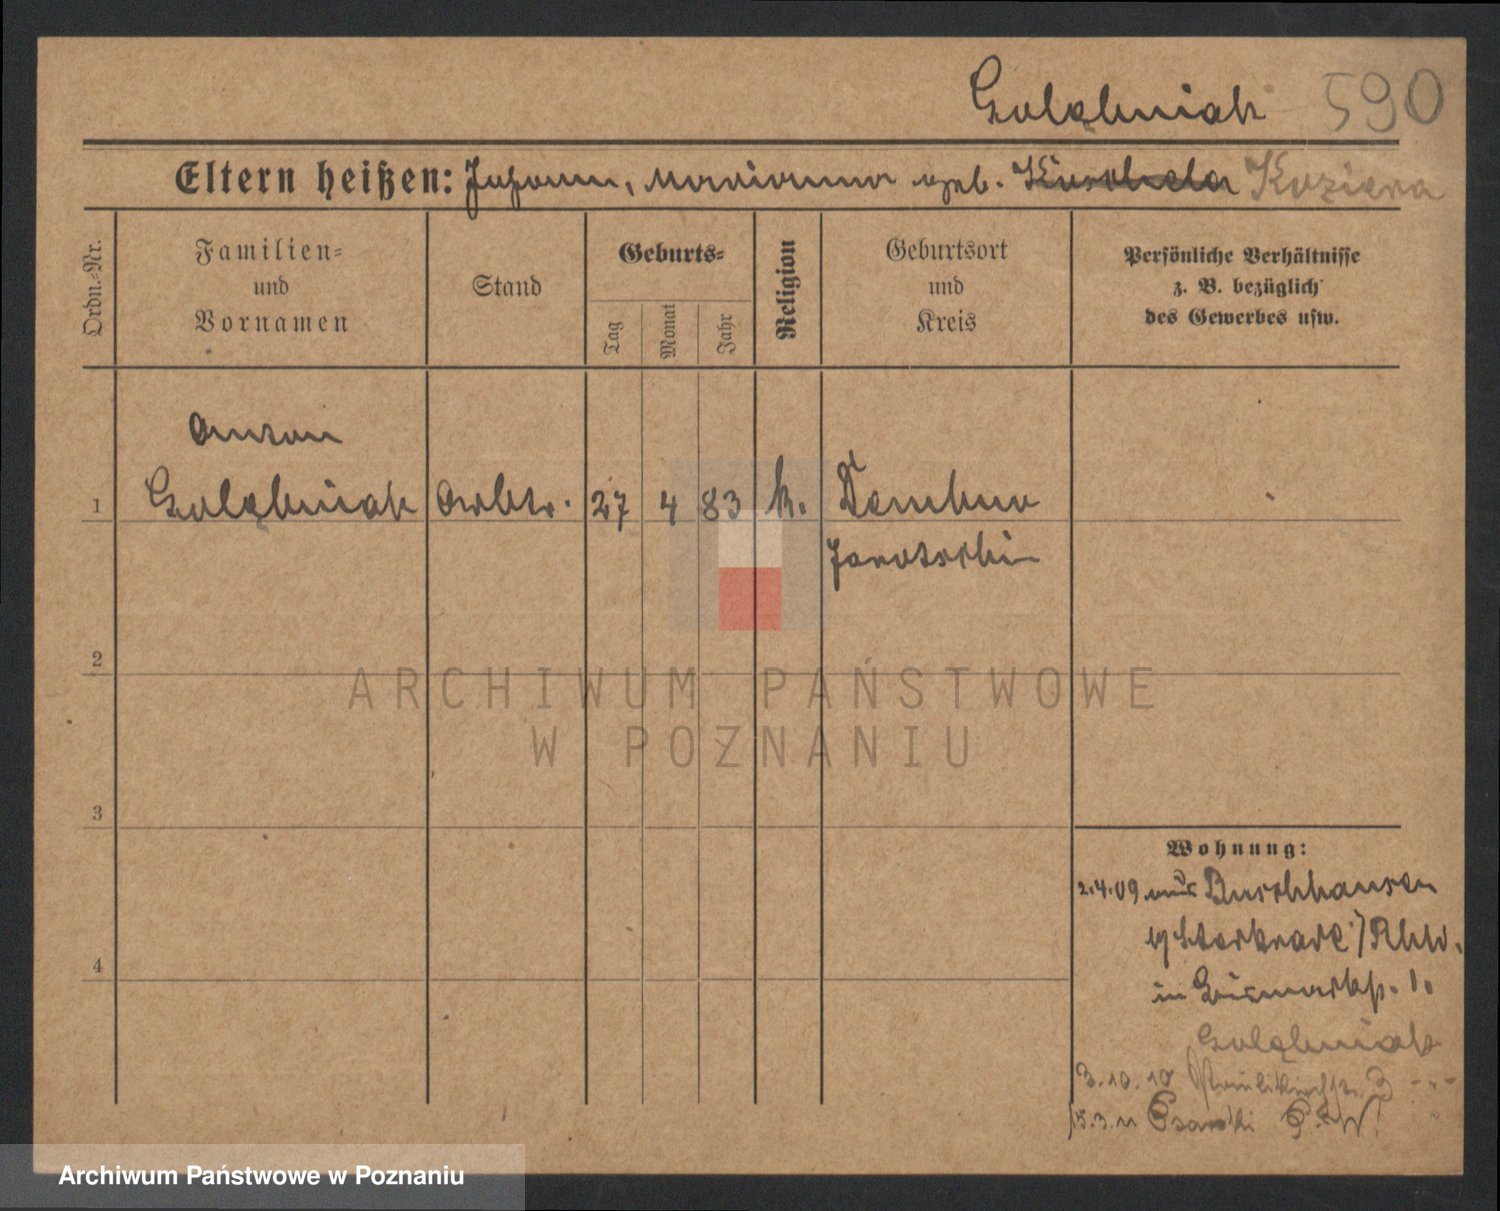 Goląbniak 590
Eltern heißen: Johann, Marianna geb. Kuschela Koziera
Ordn.-Nr.
Familien- und Vornamen
Stand
Geburts-
Tag
Monat
Jahr
Religion
Geburtsort und Kreis
Persönliche Verhältnisse
z. B. bezüglich
des Gewerbes usw.
Anton
1 Goląbniak Arbtr. 27 4 83 k. Dembno
Jarotschin
2
ARCHIWUM PAŃSTWOWE
W POZNANIU
3
Wohnung:
2.4.09 aus Buschhausen
b/ Sterkrade / Rhld.
4
in Bismarckstr. 1.
Goląbniak
3.10.10 3
15.3.11
Archiwum Państwowe w Poznaniu